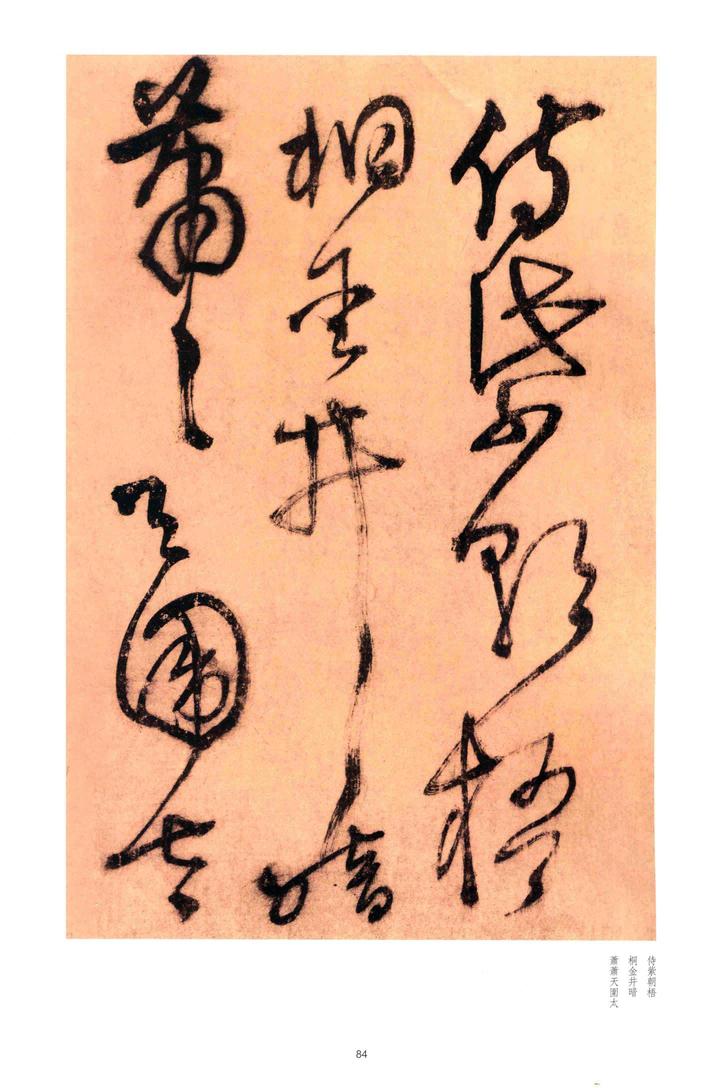 侍紫朝梧
桐金井暗
蕭蕭天圉太
侍紫朝梧
桐金井暗
蕭蕭天圉太
84